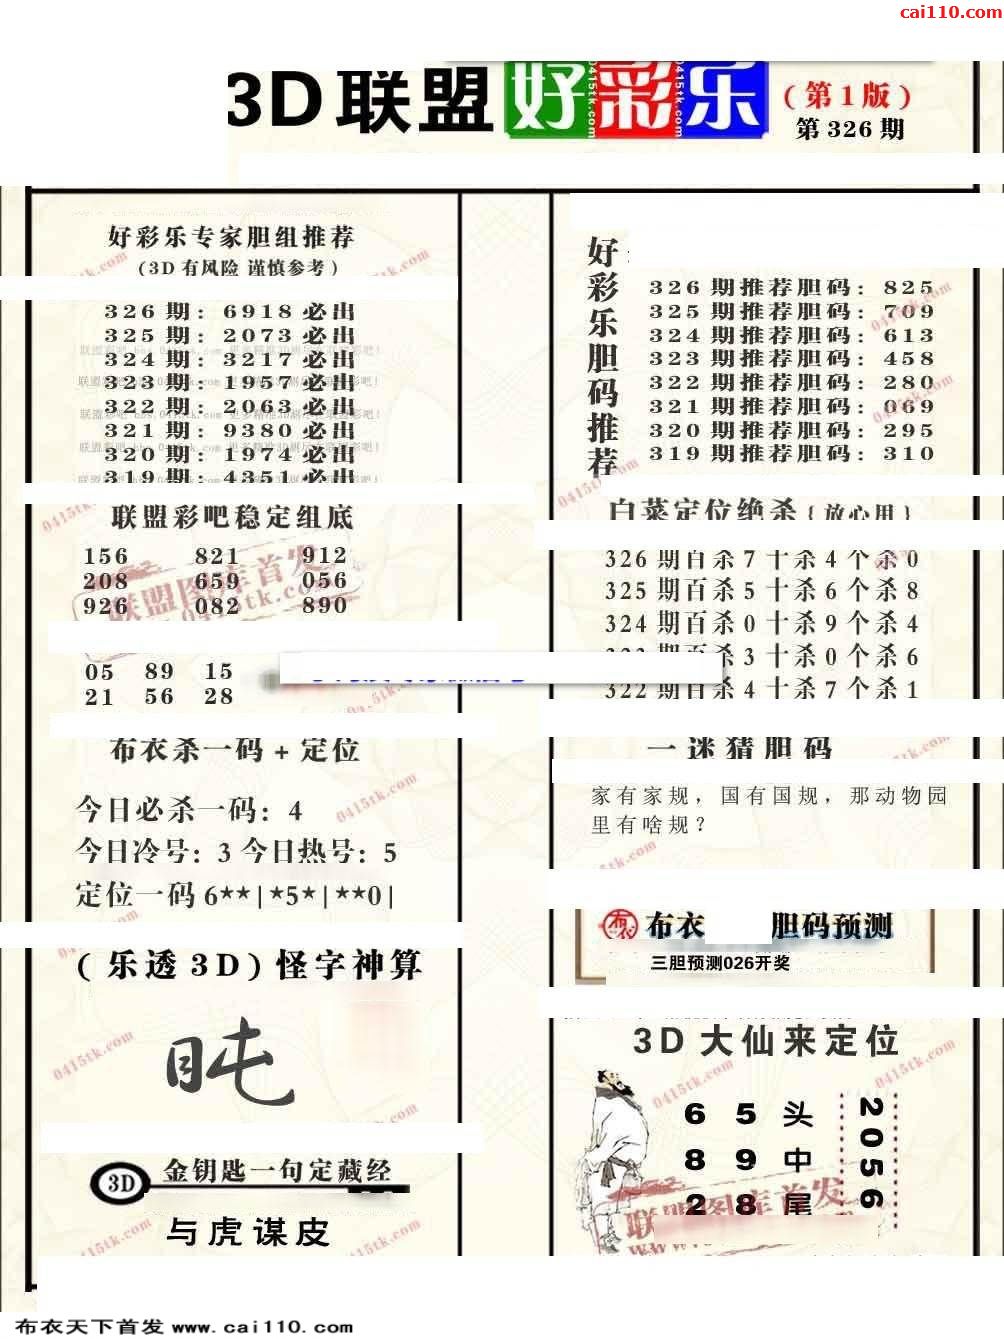 cai110.com
3D联盟 好彩乐
(第1版)
第326期
好彩乐专家胆组推荐
(3D有风险 谨慎参考)
326期: 6918必出
325期: 2073必出
324期: 3217必出
323期: 1957必出
322期: 2063必出
321期: 9380必出
320期: 1974必出
319期: 4351必出
联盟彩吧稳定组底
156 821 912
208 659 056
926 082 890
05 89 15
21 56 28
布衣杀一码+定位
今日必杀一码: 4
今日冷号: 3 今日热号: 5
定位一码 6**|*5*|**0|
(乐透3D)怪字神算
3D 金钥匙一句定藏经
与虎谋皮
好彩乐胆码推荐
326期推荐胆码: 825
325期推荐胆码: 709
324期推荐胆码: 613
323期推荐胆码: 458
322期推荐胆码: 280
321期推荐胆码: 069
320期推荐胆码: 295
319期推荐胆码: 310
白菜定位绝杀{放心用}
326期百杀7十杀4个杀0
325期百杀5十杀6个杀8
324期百杀0十杀9个杀4
杀3十杀0个杀6
322期百杀4十杀7个杀1
一迷猜胆码
家有家规，国有国规，那动物园
里有啥规？
布衣 布衣 胆码预测
三胆预测026开奖
3D大仙来定位
6 5 头
8 9 中
2 8 尾
2056
联盟图库首发
0415tk.com
布衣天下首发 www.cai110.com